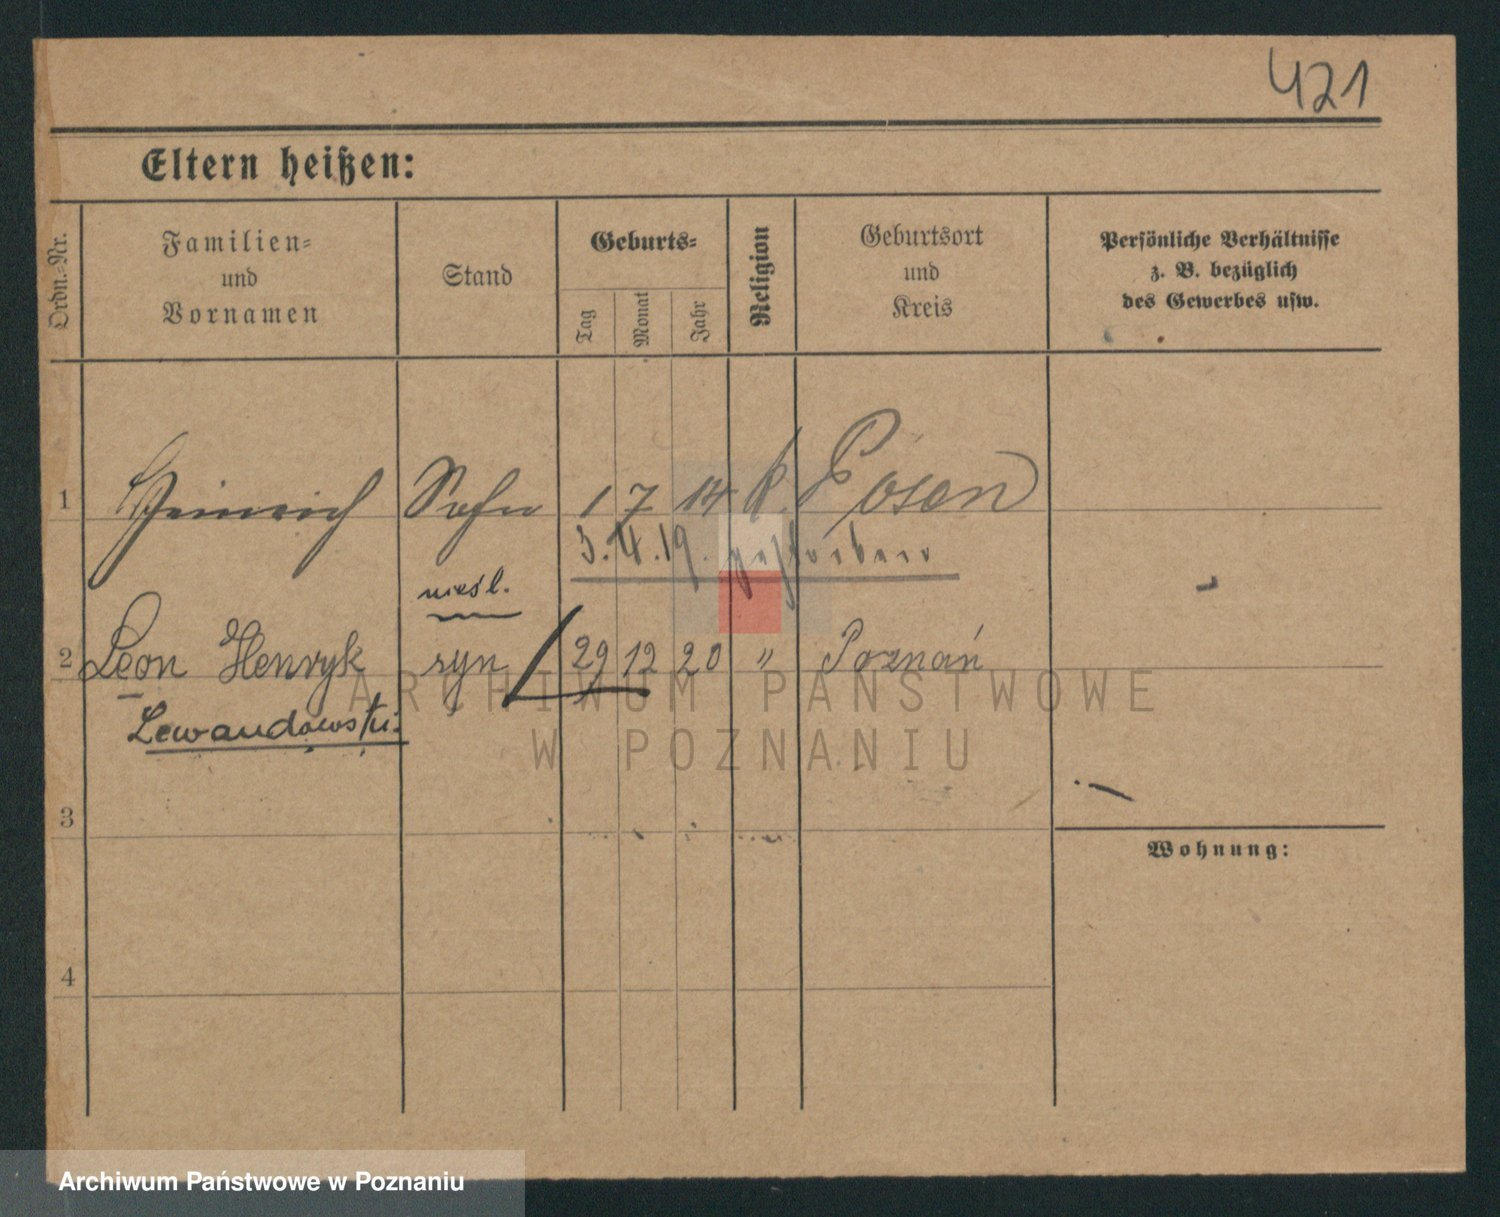 421
Eltern heißen:
Ordn.-Nr.
Familien-
und
Vornamen
Stand
Geburts-
Tag
Monat
Jahr
Religion
Geburtsort
und
Kreis
Persönliche Verhältnisse
z. B. bezüglich
des Gewerbes usw.
1 Heinrich Sohn 1 7 14 k. Posen
3.4.19. gestorben
nieśl.
2 Leon Henryk syn 29 12 20 " Poznań
Lewandowski.
ARCHIWUM PAŃSTWOWE
W POZNANIU
3
Wohnung:
4
Archiwum Państwowe w Poznaniu